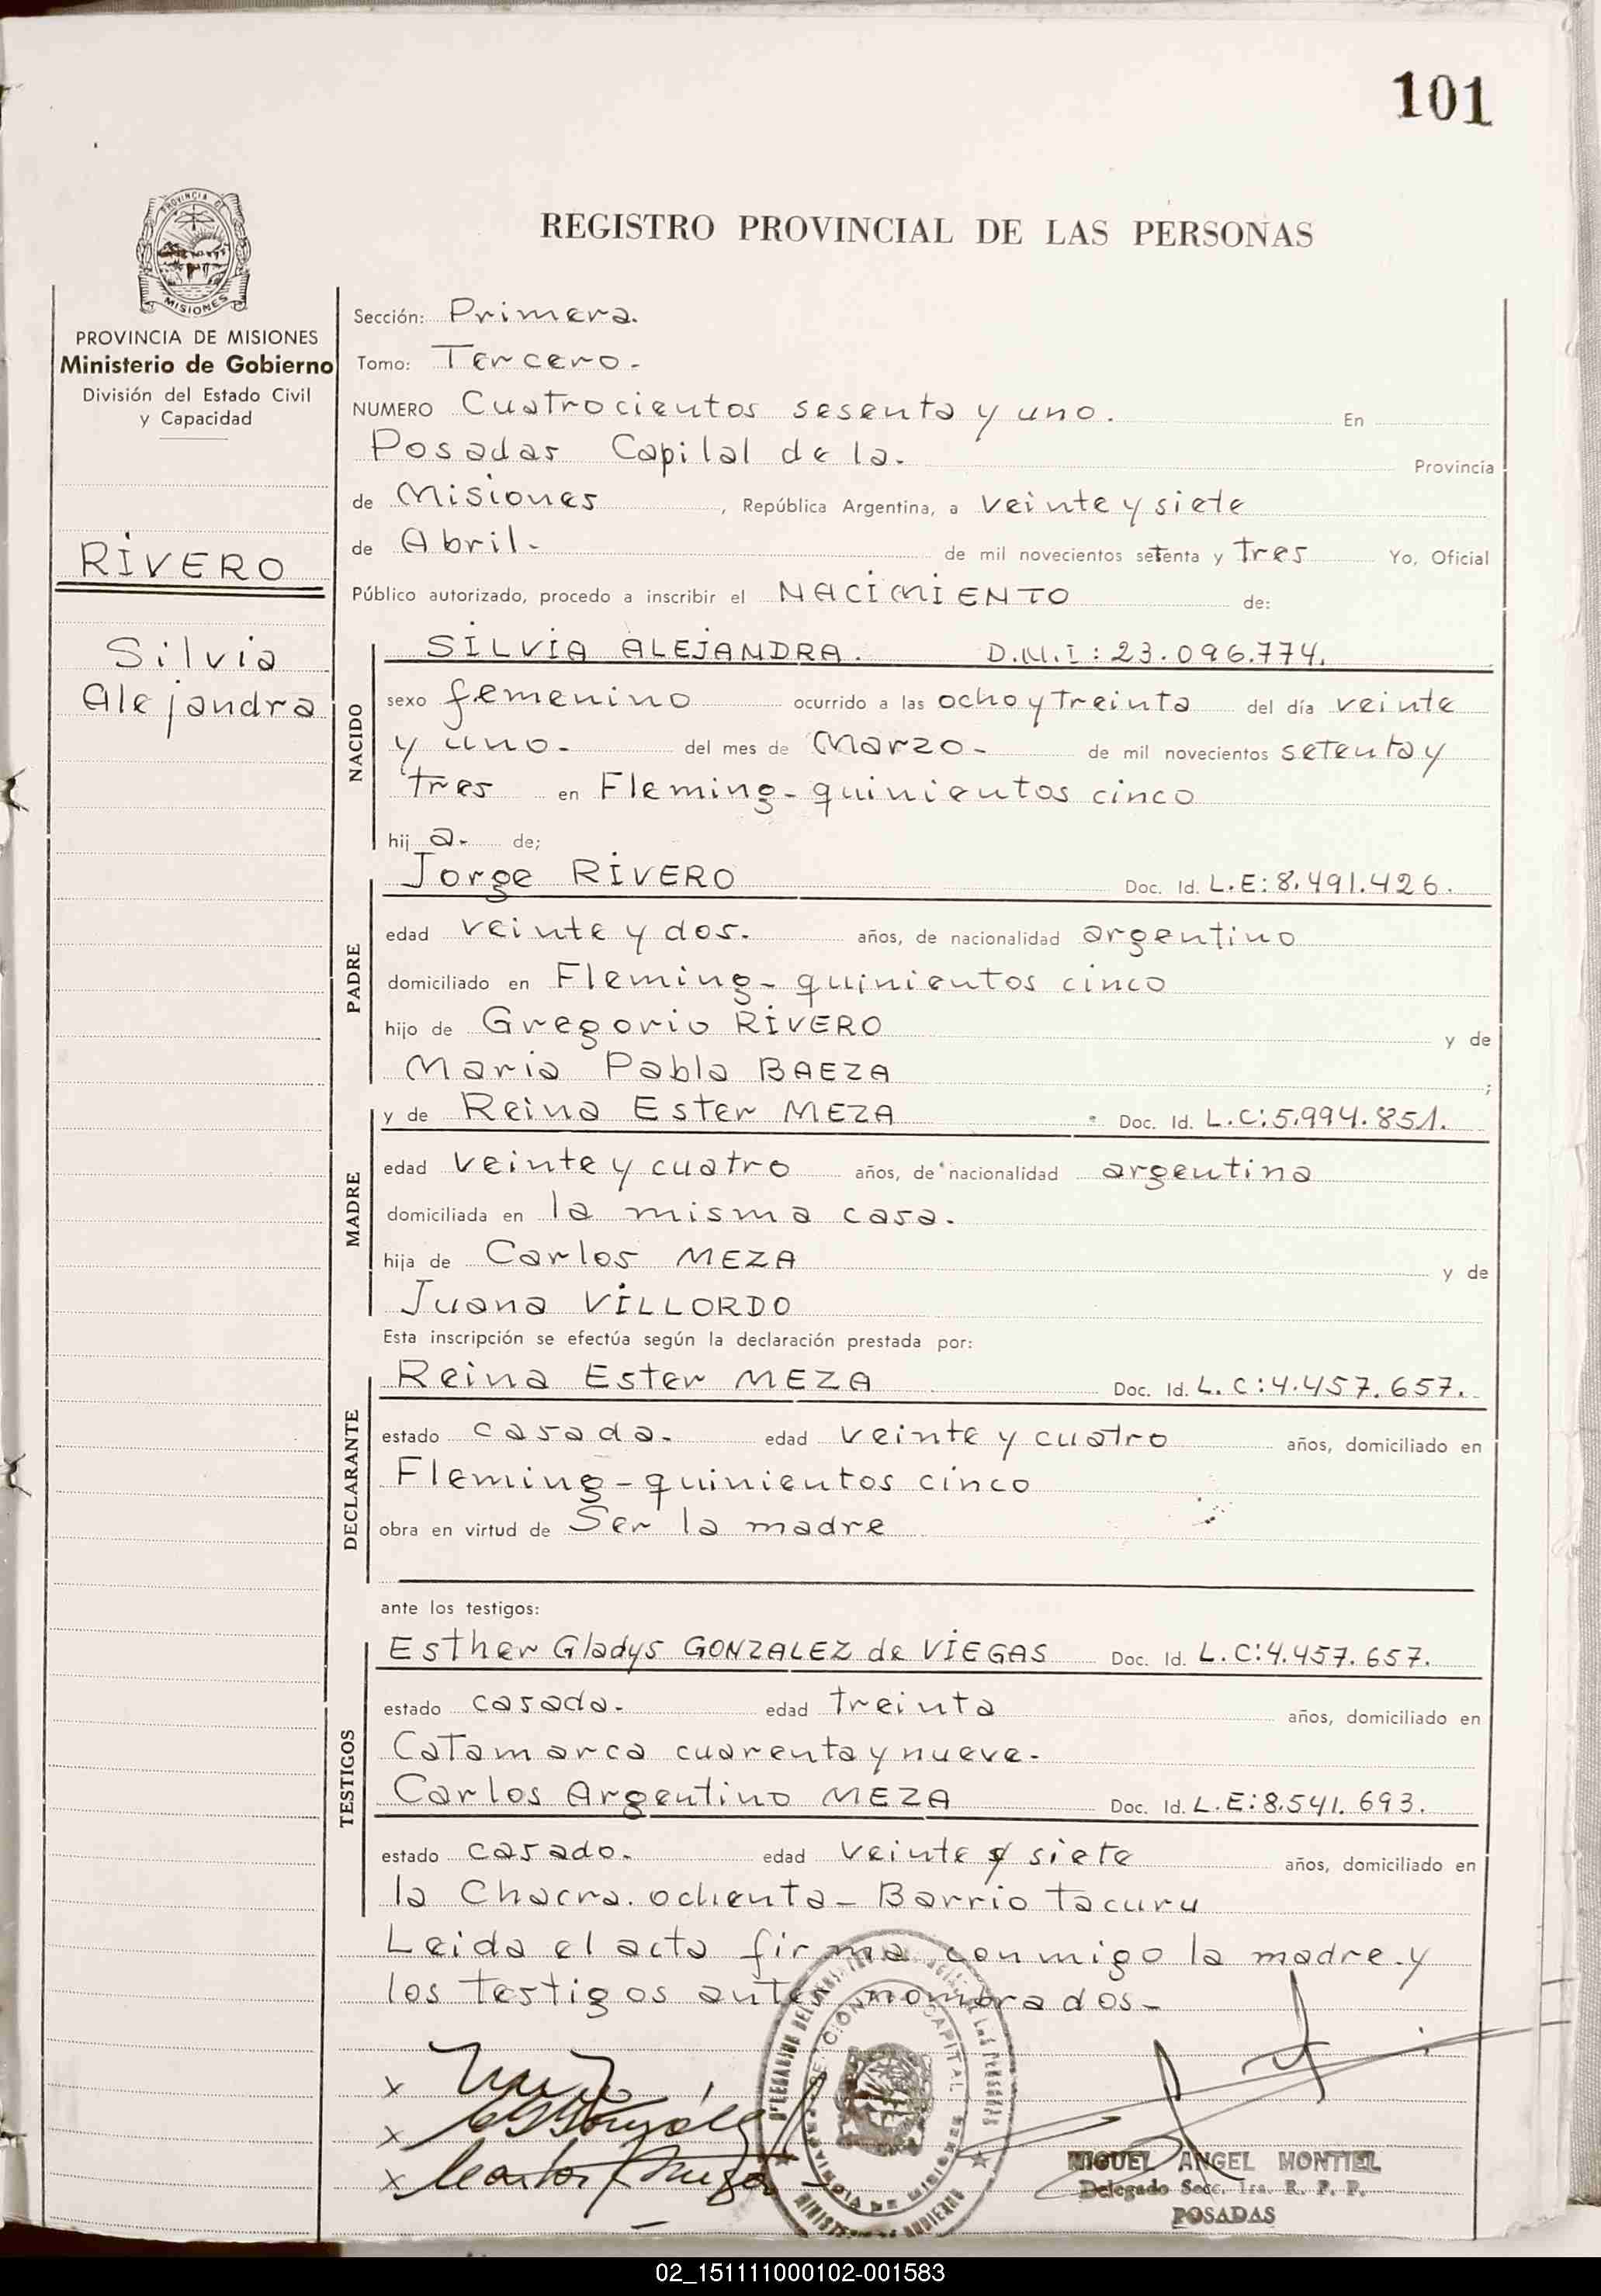 101
PROVINCIA DE
MISIONES
REGISTRO PROVINCIAL DE LAS PERSONAS
PROVINCIA DE MISIONES
Ministerio de Gobierno
División del Estado Civil
y Capacidad
RIVERO
Silvia
Alejandra
Sección: Primera.
Tomo: Tercero.-
NUMERO Cuatrocientos sesenta y uno. En
Posadas Capital de la. Provincia
de Misiones, República Argentina, a veinte y siete
de Abril.- de mil novecientos setenta y Tres Yo, Oficial
Público autorizado, procedo a inscribir el NACIMIENTO de:
NACIDO
SILVIA ALEJANDRA. D.N.I: 23.096.774.
sexo femenino ocurrido a las ocho y Treinta del día veinte
y uno.- del mes de Marzo.- de mil novecientos setenta y
tres en Fleming- quinientos cinco
hij a.- de;
PADRE
Jorge RIVERO Doc. Id. L.E: 8.491.426.
edad veinte y dos. años, de nacionalidad argentino
domiciliado en Fleming- quinientos cinco
hijo de Gregorio RIVERO y de
Maria Pabla BAEZA ;
MADRE
y de Reina Ester MEZA Doc. Id. L.C: 5.994.851.
edad veinte y cuatro años, de nacionalidad argentina
domiciliada en la misma casa.
hija de Carlos MEZA y de
Juana VILLORDO
Esta inscripción se efectúa según la declaración prestada por:
DECLARANTE
Reina Ester MEZA Doc. Id. L.C: 4.457.657.
estado casada.- edad veinte y cuatro años, domiciliado en
Fleming-quinientos cinco
obra en virtud de Ser la madre
ante los testigos:
TESTIGOS
Esther Gladys GONZALEZ de VIEGAS Doc. Id. L.C: 4.457.657.
estado casada.- edad treinta años, domiciliado en
Catamarca cuarenta y nueve.-
Carlos Argentino MEZA Doc. Id. L.E: 8.541.693.
estado casado.- edad veinte y siete años, domiciliado en
la Chacra. ochenta- Barrio Tacuru
Leida el acta firma conmigo la madre y
los Testigos antes nombrados-
x
x
x
CAPITAL
PROVINCIA DE MISIONES
MINISTERIO DE GOBIERNO
MIGUEL ANGEL MONTIEL
Delegado Secc. 1ra. R. P. P.
POSADAS
02_151111000102-001583